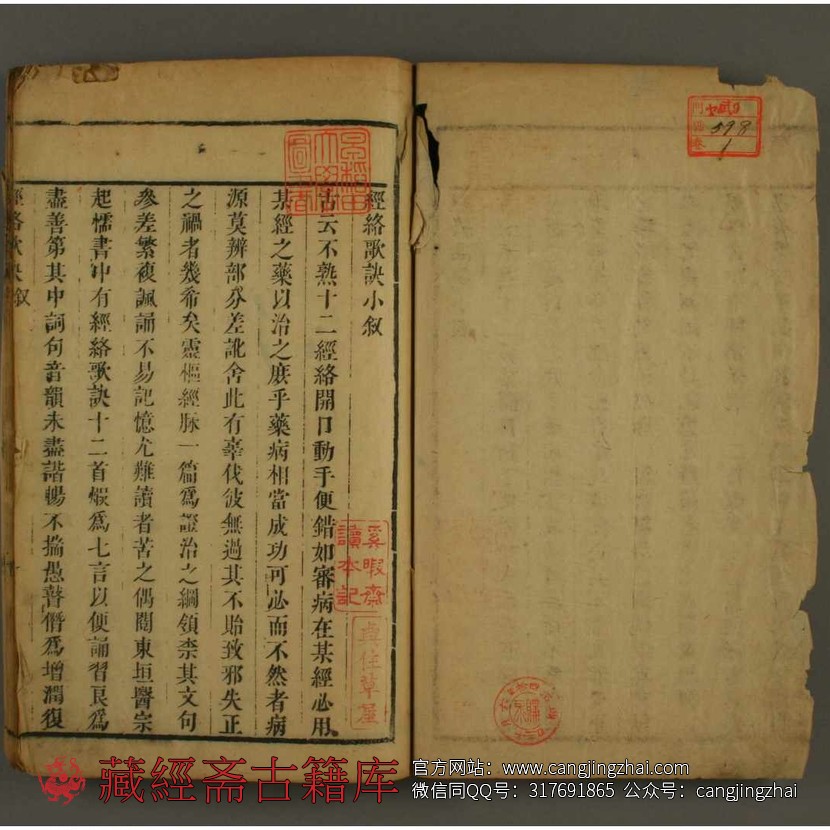 經絡歌訣小叙
古云不熟十二經絡開口動手便錯如審病在某經必用
某經之藥以治之庶乎藥病相當成功可必而不然者病
源莫辨部分差訛舍此有辜伐彼無過其不貽致邪失正
之禍者幾希矣靈樞經脉一篇爲證治之綱領柰其文句
參差繁複諷誦不易記憶尤難讀者苦之偶閱東垣醫宗
起懦書中有經絡歌訣十二首綴爲七言以便誦習良爲
盡善第其中詞句音韻未盡諧暢不揣愚瞽僭爲增潤復
經絡歌訣叙
早稻田大學圖書
奚暇齋讀本記
598
1
藏經斋古籍库
官方网站：www.cangjingzhai.com
微信同QQ号：317691865 公众号：cangjingzhai